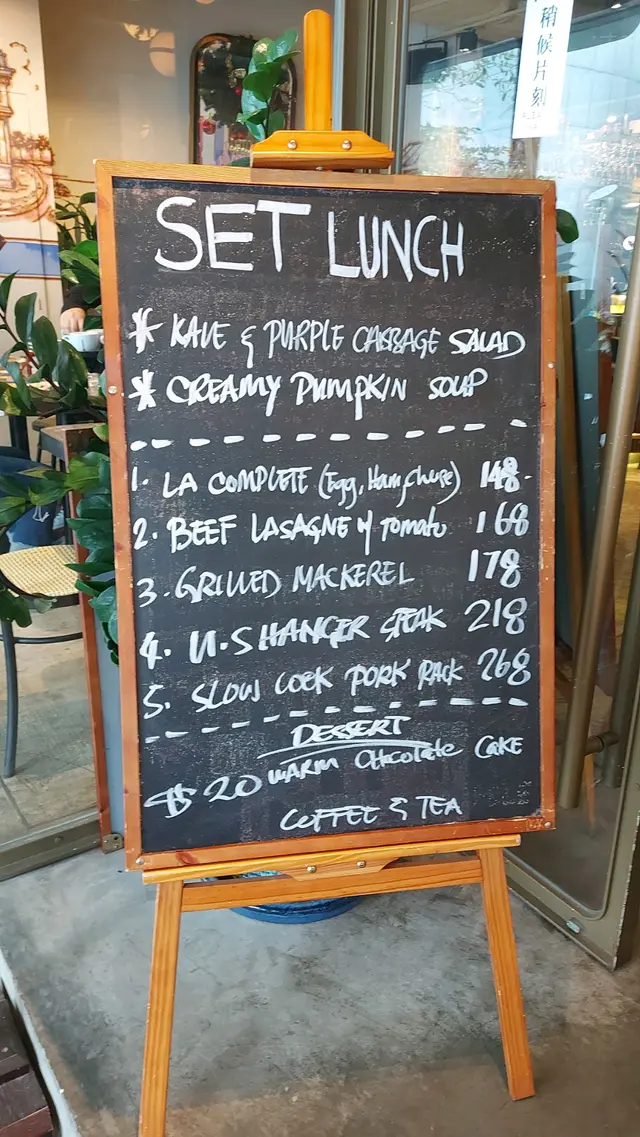 稍候片刻
SET LUNCH
* KALE & PURPLE CABBAGE SALAD
* CREAMY PUMPKIN SOUP
1. LA COMPLETE (Egg, Ham, Cheese) 148.
2. BEEF LASAGNE W Tomato 168
3. GRILLED MACKEREL 178
4. U.S HANGER STEAK 218
5. SLOW COOK PORK RACK 268
DESSERT
$20 WARM CHOCOLATE CAKE
COFFEE & TEA